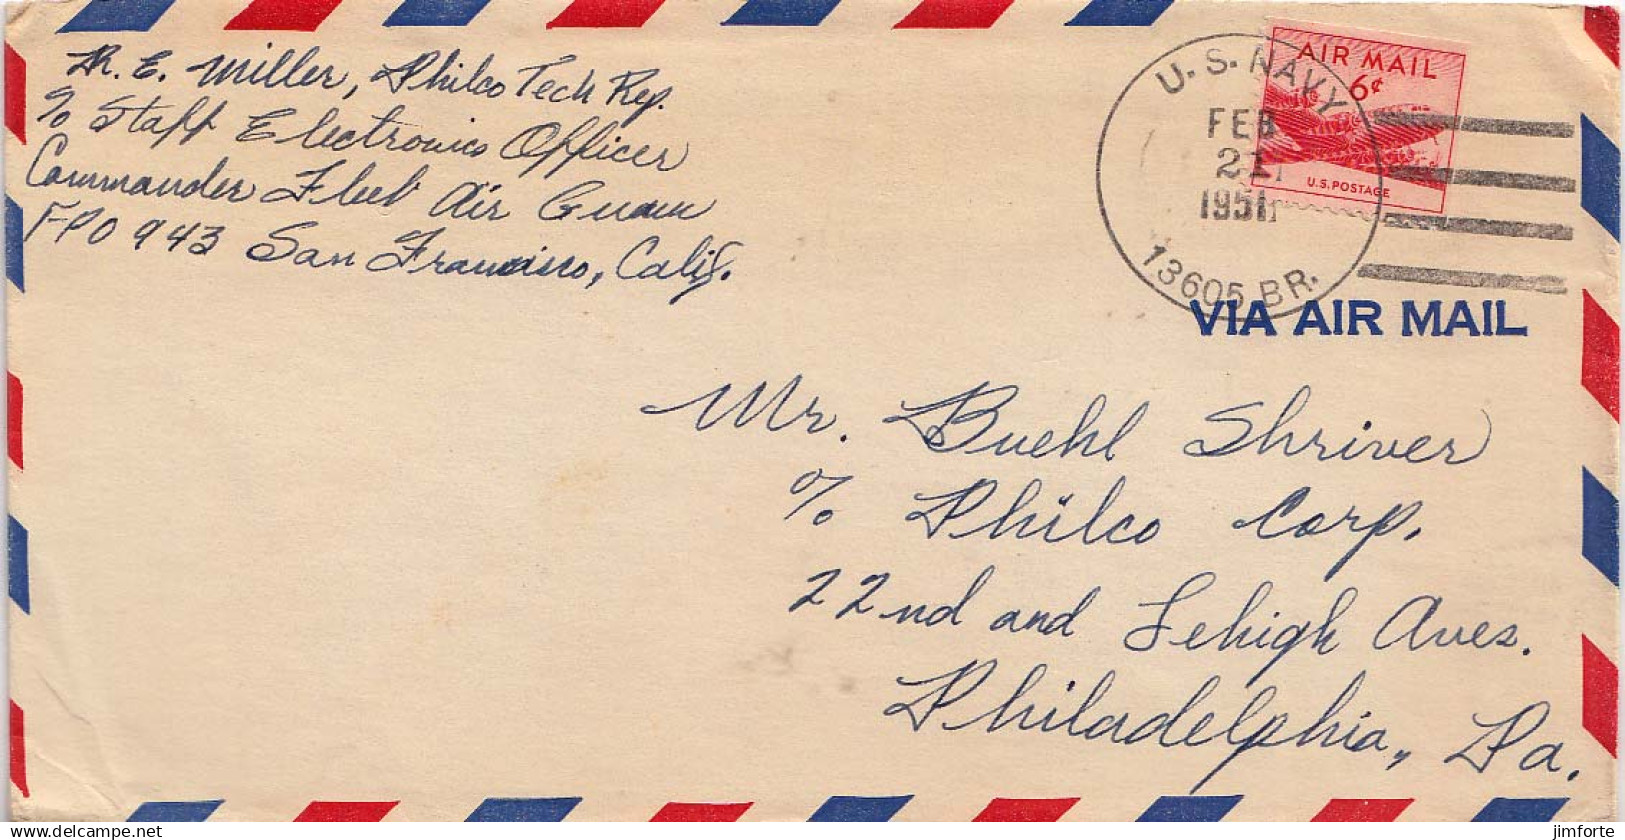 R. E. Miller, Philco Tech Rep.
% Staff Electronics Officer
Commander Fleet Air Guam
FPO 943 San Francisco, Calif.
U.S. NAVY
FEB
21
1951
13605 BR.
AIR MAIL
6¢
U.S. POSTAGE
VIA AIR MAIL
Mr. Buehl Shriver
% Philco Corp.
22nd and Lehigh Aves.
Philadelphia, Pa.
www.delcampe.net
jimforte